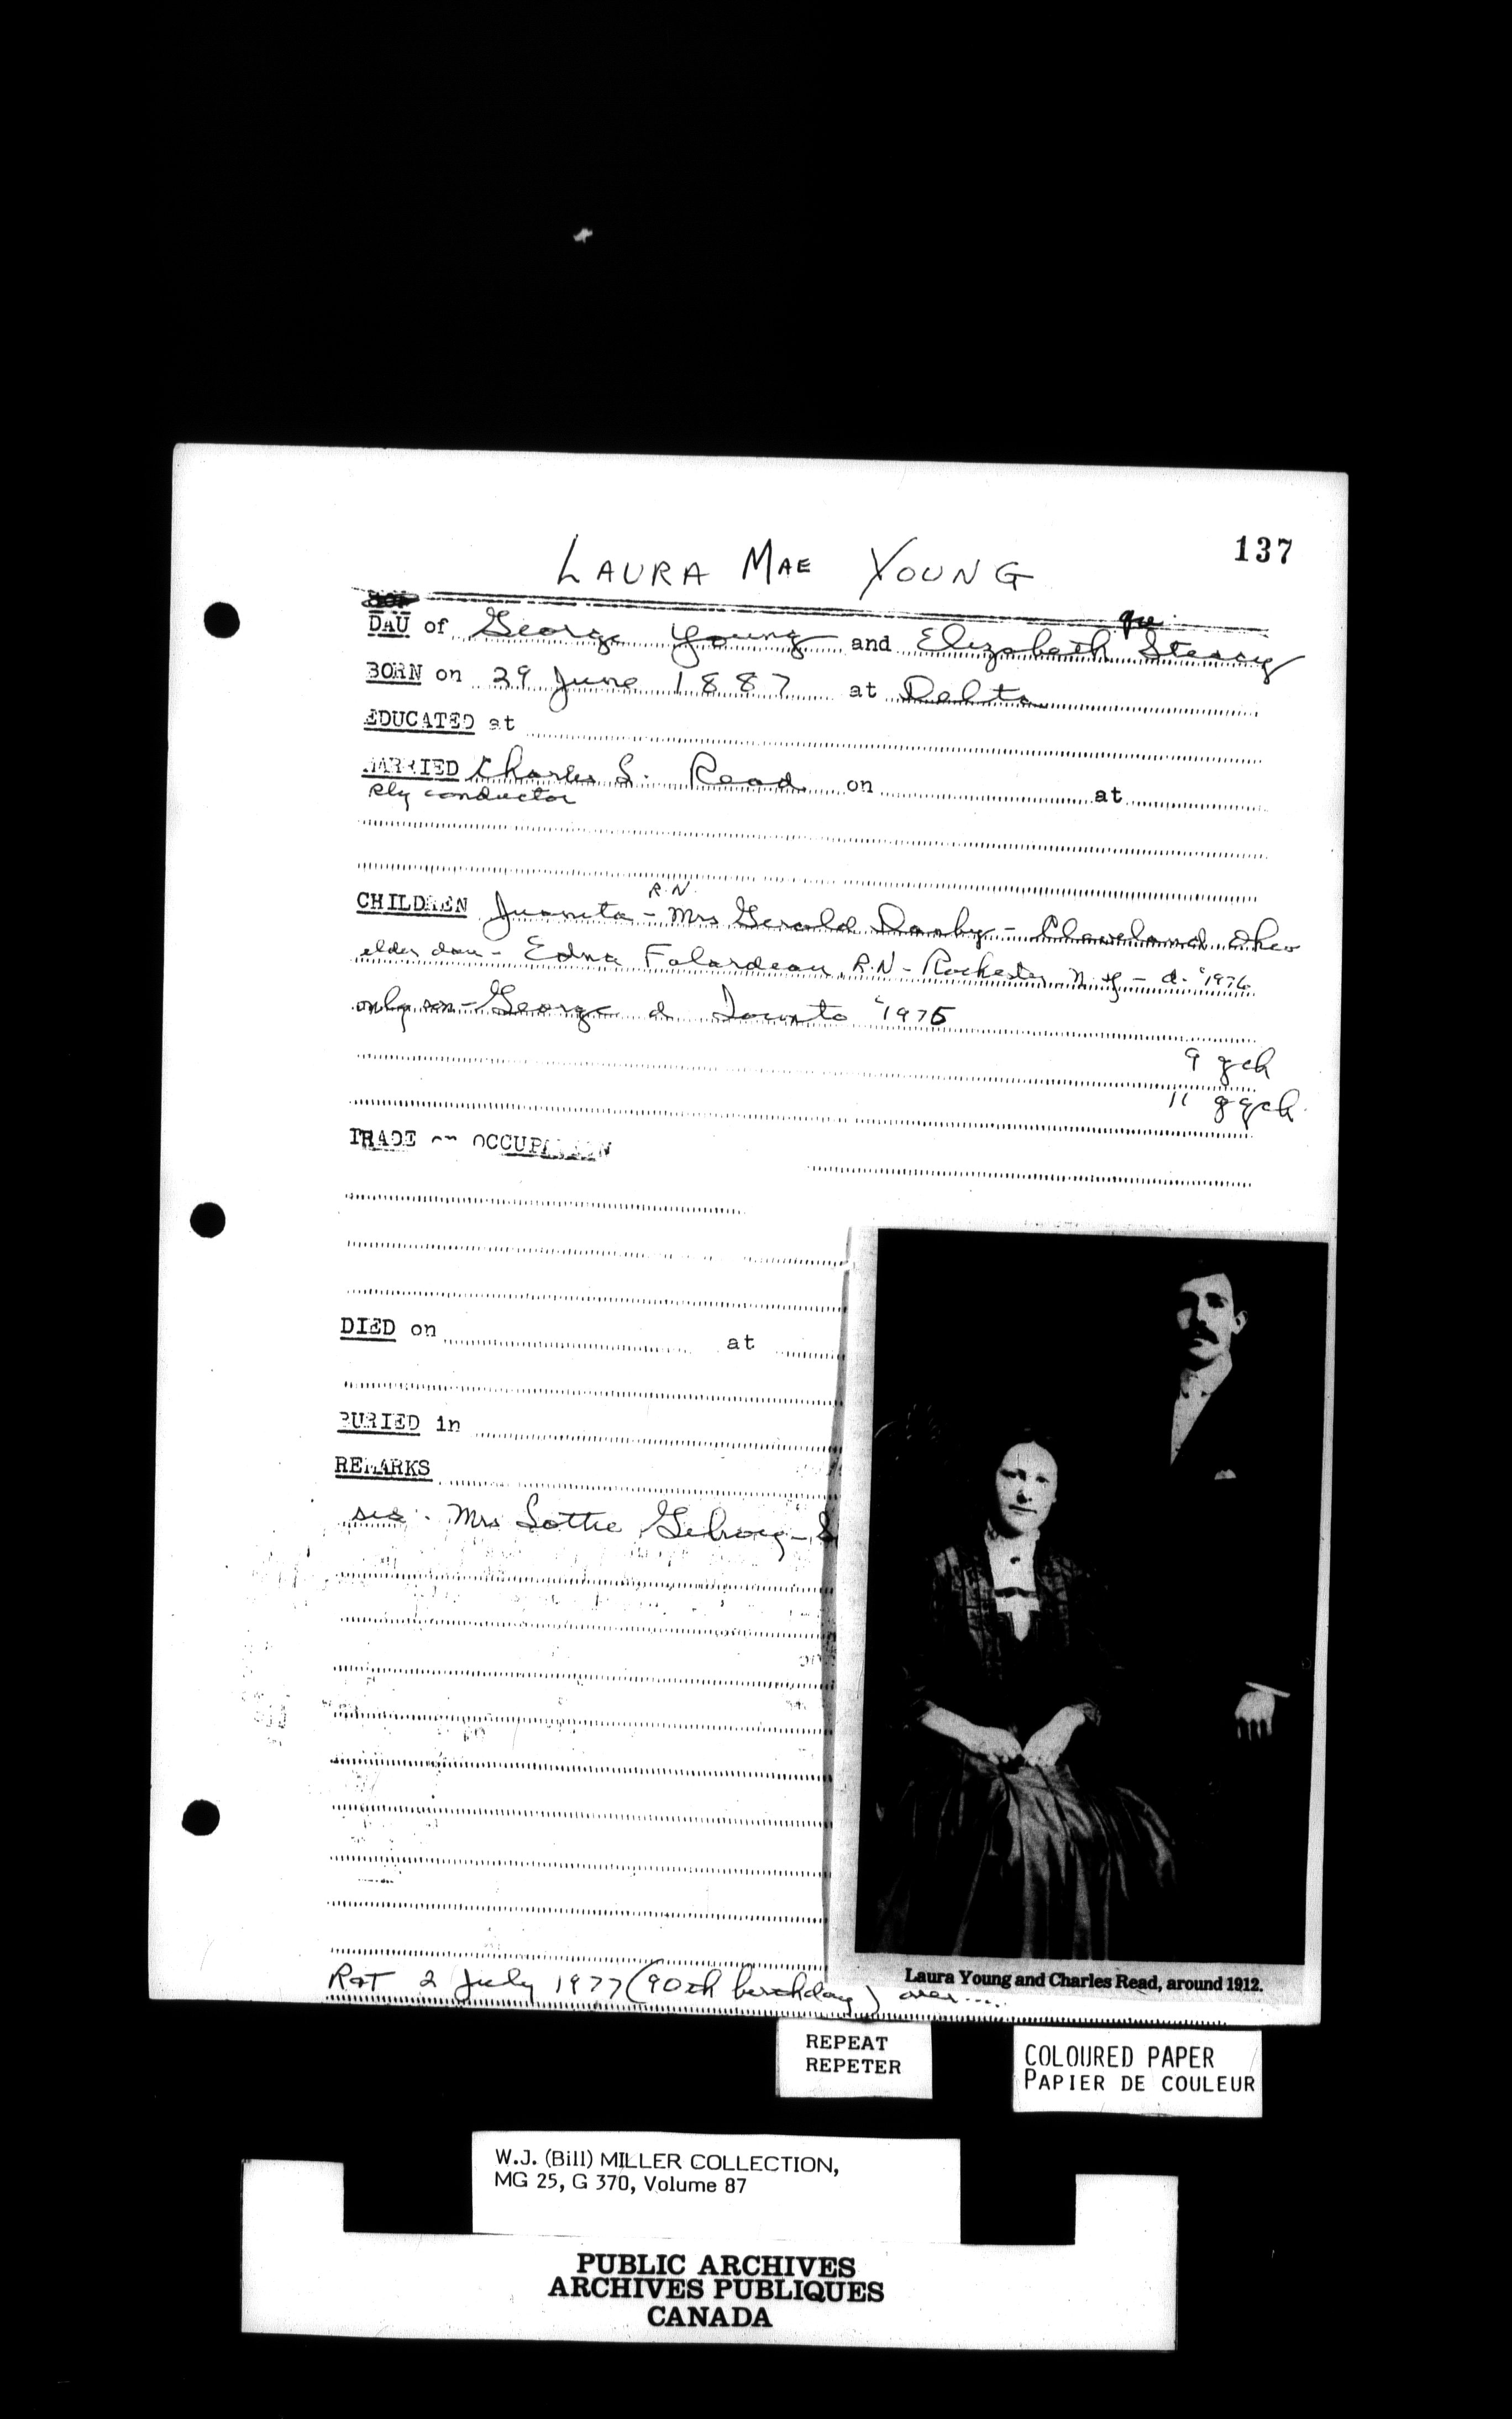 137
LAURA MAE YOUNG
DAU of George Young and Elizabeth Stevey
BORN on 29 June 1887 at Delta
EDUCATED at
MARRIED Charles S. Read on at
Rly conductor
R.N.
CHILDREN Juanita - Mrs Gerald Danby - Cleveland Ohio
elder dau - Edna Falardeau, R.N - Rochester N.Y - d. '1976
only son - George d Toronto '1975
9 gch
11 ggch.
TRADE or OCCUPATION
DIED on at
BURIED in
REMARKS
sis. Mrs Lottie
R&T 2 July 1977 (90th birthday) over....
Laura Young and Charles Read, around 1912.
REPEAT
REPETER
COLOURED PAPER
PAPIER DE COULEUR
W.J. (Bill) MILLER COLLECTION,
MG 25, G 370, Volume 87
PUBLIC ARCHIVES
ARCHIVES PUBLIQUES
CANADA